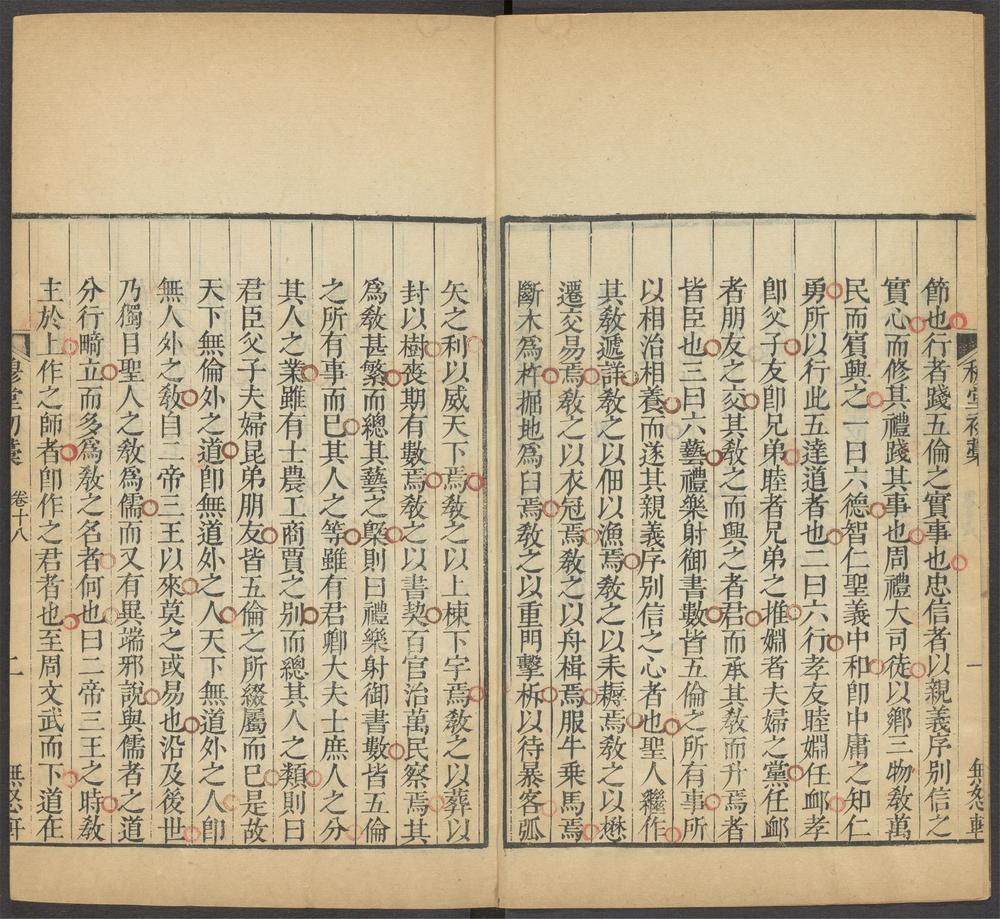 節也行者踐五倫之實事也忠信者以親義序別信之
實心而修其禮踐其事也周禮大司徒以鄉三物敎萬
民而賓興之一曰六德智仁聖義中和卽中庸之知仁
勇所以行此五達道者也二曰六行孝友睦婣任䘏孝
卽父子友卽兄弟睦者兄弟之推婣者夫婦之黨任䘏
者朋友之交其敎之而興之者君而承其敎而升焉者
皆臣也三曰六藝禮樂射御書數皆五倫之所有事所
以相治相養而遂其親義序別信之心者也聖人繼作
其敎遞詳敎之以佃以漁焉敎之以耒耨焉敎之以懋
遷交易焉敎之以衣冠焉敎之以舟楫焉服牛乗馬焉
斷木爲杵掘地爲臼焉敎之以重門擊柝以待暴客弧
矢之利以威天下焉敎之以上棟下宇焉敎之以葬以
封以樹喪期有數焉敎之以書契百官治萬民察焉其
爲敎甚繁而總其藝之槩則曰禮樂射御書數皆五倫
之所有事而已其人之等雖有君卿大夫士庶人之分
其人之業雖有士農工商賈之别而總其人之類則曰
君臣父子夫婦昆弟朋友皆五倫之所綴屬而已是故
天下無倫外之道卽無道外之人天下無道外之人卽
無人外之敎自二帝三王以來莫之或易也沿及後世
乃獨目聖人之敎爲儒而又有異端邪說與儒者之道
分行畸立而多爲敎之名者何也曰二帝三王之時敎
主於上作之師者卽作之君者也至周文武而下道在
穆堂初稾 卷十八 二 無怒軒